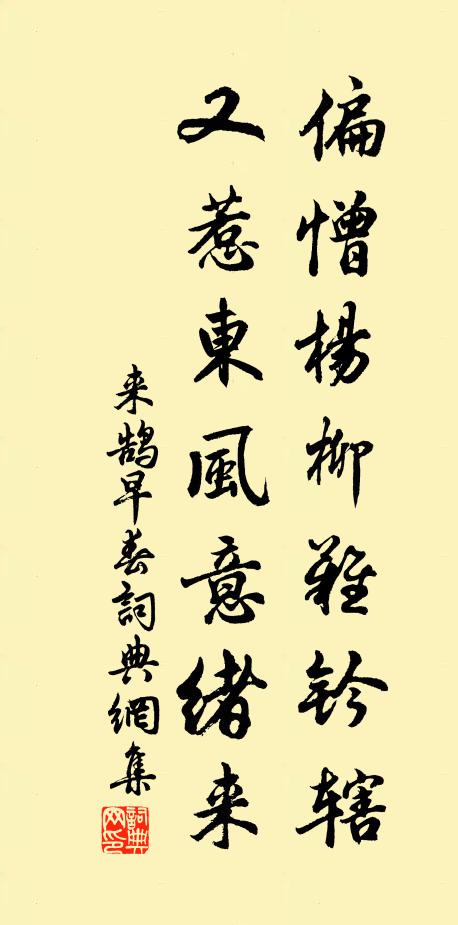 偏憎楊柳難鈐轄
又惹東風意緒来
来鵠早春詞典網集
詞典网印